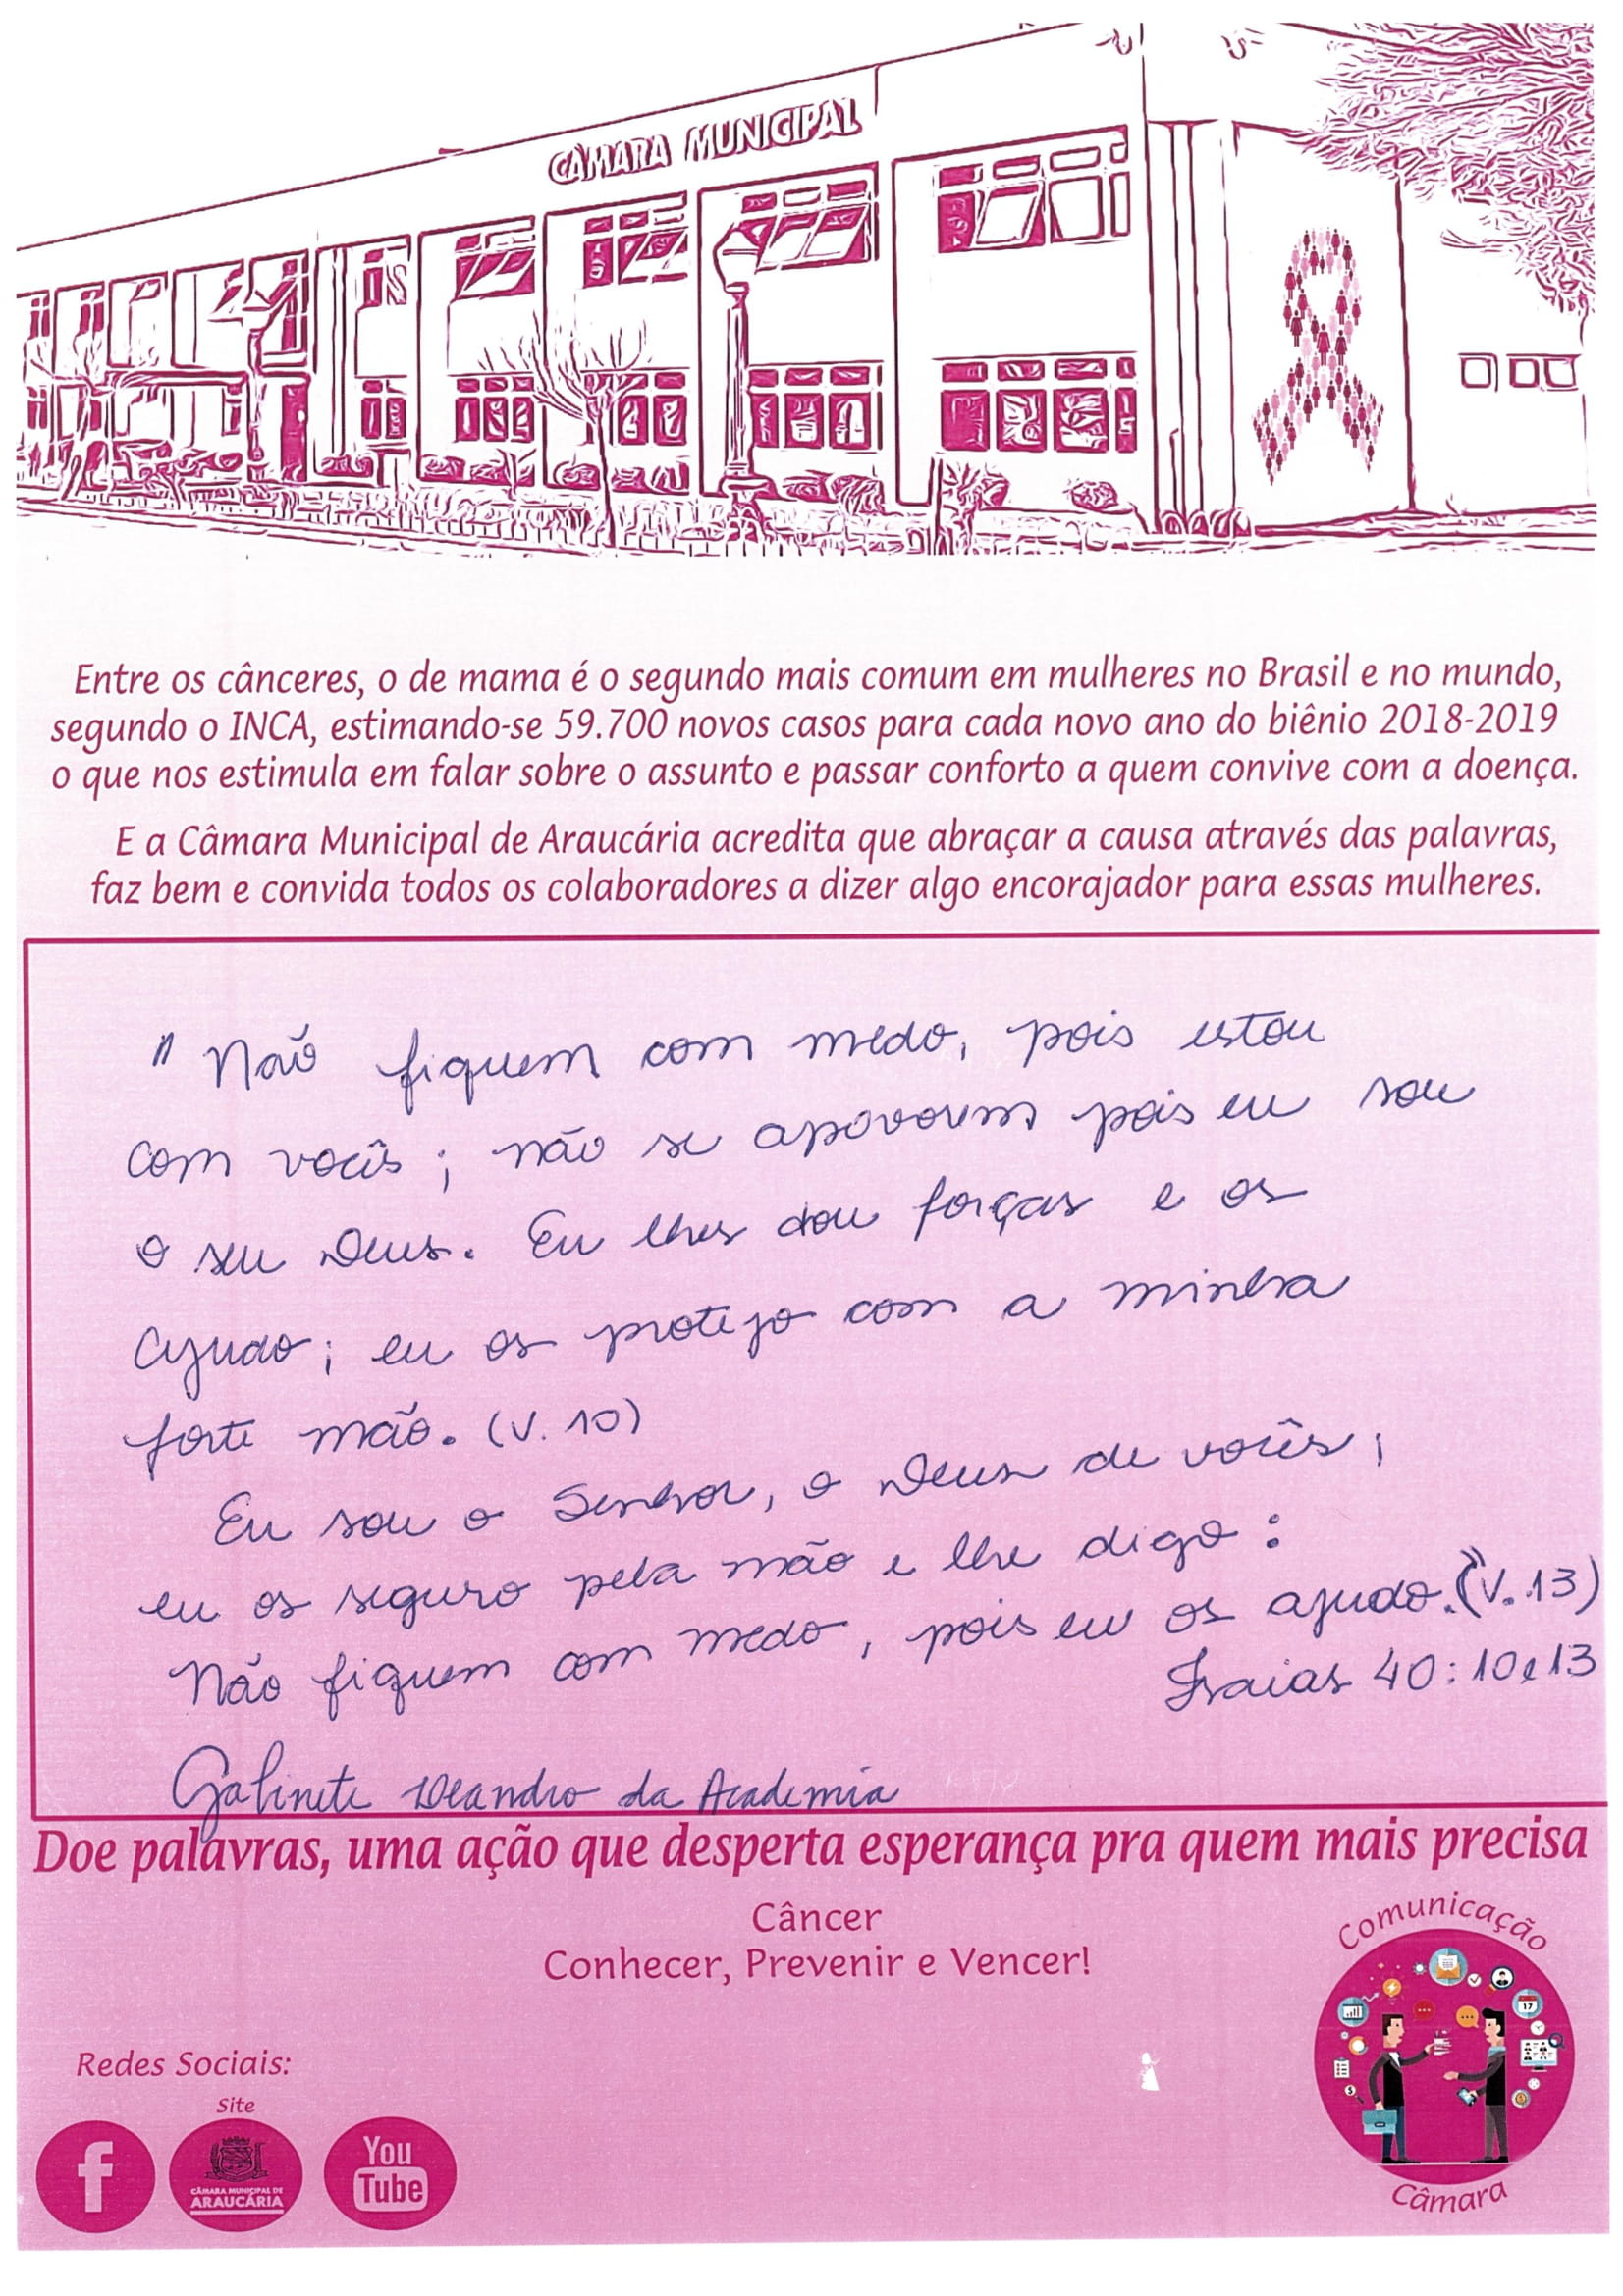 CÂMARA MUNICIPAL
Entre os cânceres, o de mama é o segundo mais comum em mulheres no Brasil e no mundo,
segundo o INCA, estimando-se 59.700 novos casos para cada novo ano do biênio 2018-2019
o que nos estimula em falar sobre o assunto e passar conforto a quem convive com a doença.
E a Câmara Municipal de Araucária acredita que abraçar a causa através das palavras,
faz bem e convida todos os colaboradores a dizer algo encorajador para essas mulheres.
" Não fiquem com medo, pois estou
com vocês; não se apavorem pois eu sou
o seu Deus. Eu lhes dou forças e os
ajudo; eu os protejo com a minha
forte mão. (V. 10)
Eu sou o Senhor, o Deus de vocês;
eu os seguro pela mão e lhe digo:
Não fiquem com medo, pois eu os ajudo." (V. 13)
Isaias 40: 10 e 13
Gabinete Leandro da Academia
Doe palavras, uma ação que desperta esperança pra quem mais precisa
Câncer
Conhecer, Prevenir e Vencer!
Comunicação
17
Câmara
Redes Sociais:
Site
f
CÂMARA MUNICIPAL DE
ARAUCÁRIA
You
Tube